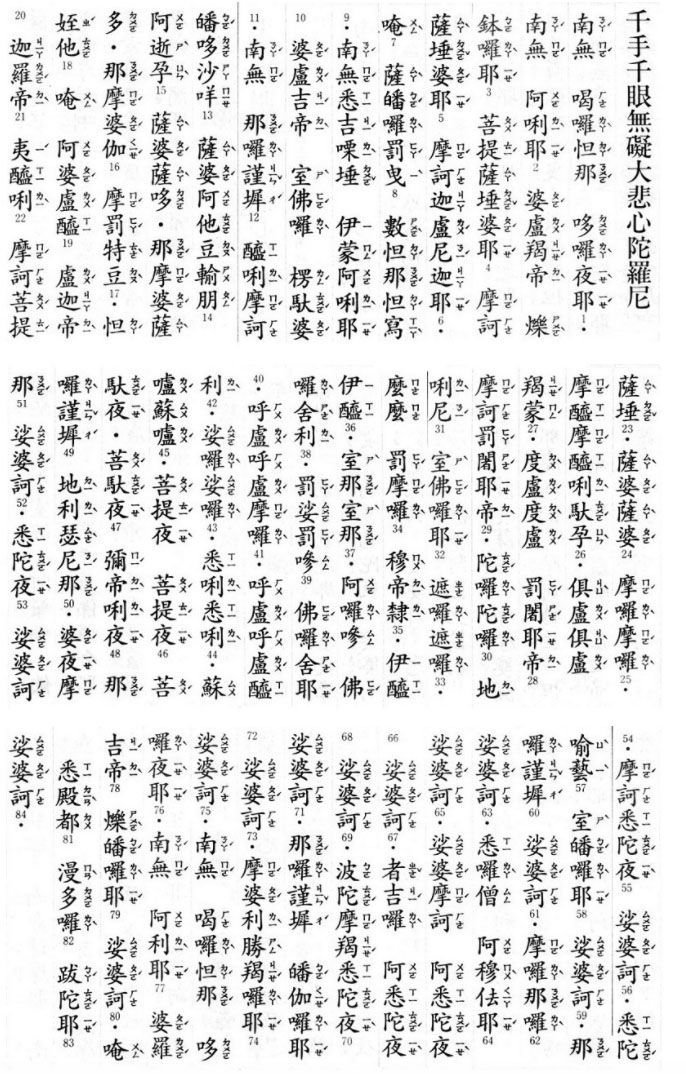 千手千眼無礙大悲心陀羅尼
南無 喝囉怛那 哆囉夜耶1·
南無 阿唎耶2 婆盧羯帝 爍
鉢囉耶3 菩提薩埵婆耶4 摩訶
薩埵婆耶5 摩訶迦盧尼迦耶6·
唵7 薩皤囉罰曳8 數怛那怛寫
9·南無悉吉㗚埵 伊蒙阿唎耶
10 婆盧吉帝 室佛囉 楞馱婆
11·南無 那囉謹墀12 醯唎摩訶
皤哆沙咩13 薩婆阿他豆輸朋14
阿逝孕15 薩婆薩哆·那摩婆薩
多·那摩婆伽16 摩罰特豆17·怛
姪他18 唵 阿婆盧醯19 盧迦帝
20 迦羅帝21 夷醯唎22 摩訶菩提
薩埵23·薩婆薩婆24 摩囉摩囉25·
摩醯摩醯唎馱孕26·俱盧俱盧
羯蒙27·度盧度盧 罰闍耶帝28
摩訶罰闍耶帝29·陀囉陀囉30 地
唎尼31 室佛囉耶32 遮囉遮囉33·
麼麼 罰摩囉34 穆帝隸35·伊醯
伊醯36·室那室那37 阿囉嘇 佛
囉舍利38·罰娑罰嘇39 佛囉舍耶
40·呼盧呼盧摩囉41·呼盧呼盧醯
利42·娑囉娑囉43·悉利悉利44·蘇
嚧蘇嚧45·菩提夜 菩提夜46 菩
馱夜·菩馱夜47 彌帝唎夜48 那
囉謹墀49 地利瑟尼那50·婆夜摩
那51 娑婆訶52·悉陀夜53 娑婆訶
54·摩訶悉陀夜55 娑婆訶56·悉陀
喻藝57 室皤囉耶58 娑婆訶59·那
囉謹墀60 娑婆訶61·摩囉那囉62
娑婆訶63 悉囉僧 阿穆佉耶64
娑婆訶65·娑婆摩訶 阿悉陀夜
66 娑婆訶67·者吉囉 阿悉陀夜
68 娑婆訶69·波陀摩羯悉陀夜70
娑婆訶71·那囉謹墀 皤伽囉耶
72 娑婆訶73·摩婆利勝羯囉耶74
娑婆訶75·南無 喝囉怛那 哆
囉夜耶76·南無 阿利耶77 婆羅
吉帝78 爍皤囉耶79 娑婆訶80·唵
悉殿都81 漫多囉82 跋陀耶83
娑婆訶84·